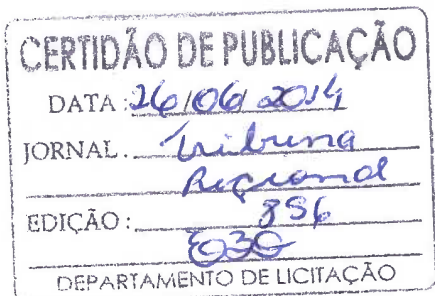 CERTIDÃO DE PUBLICAÇÃO
DATA: 26/06/2014
JORNAL: Tribuna
Regional
EDIÇÃO: 856
DEPARTAMENTO DE LICITAÇÃO